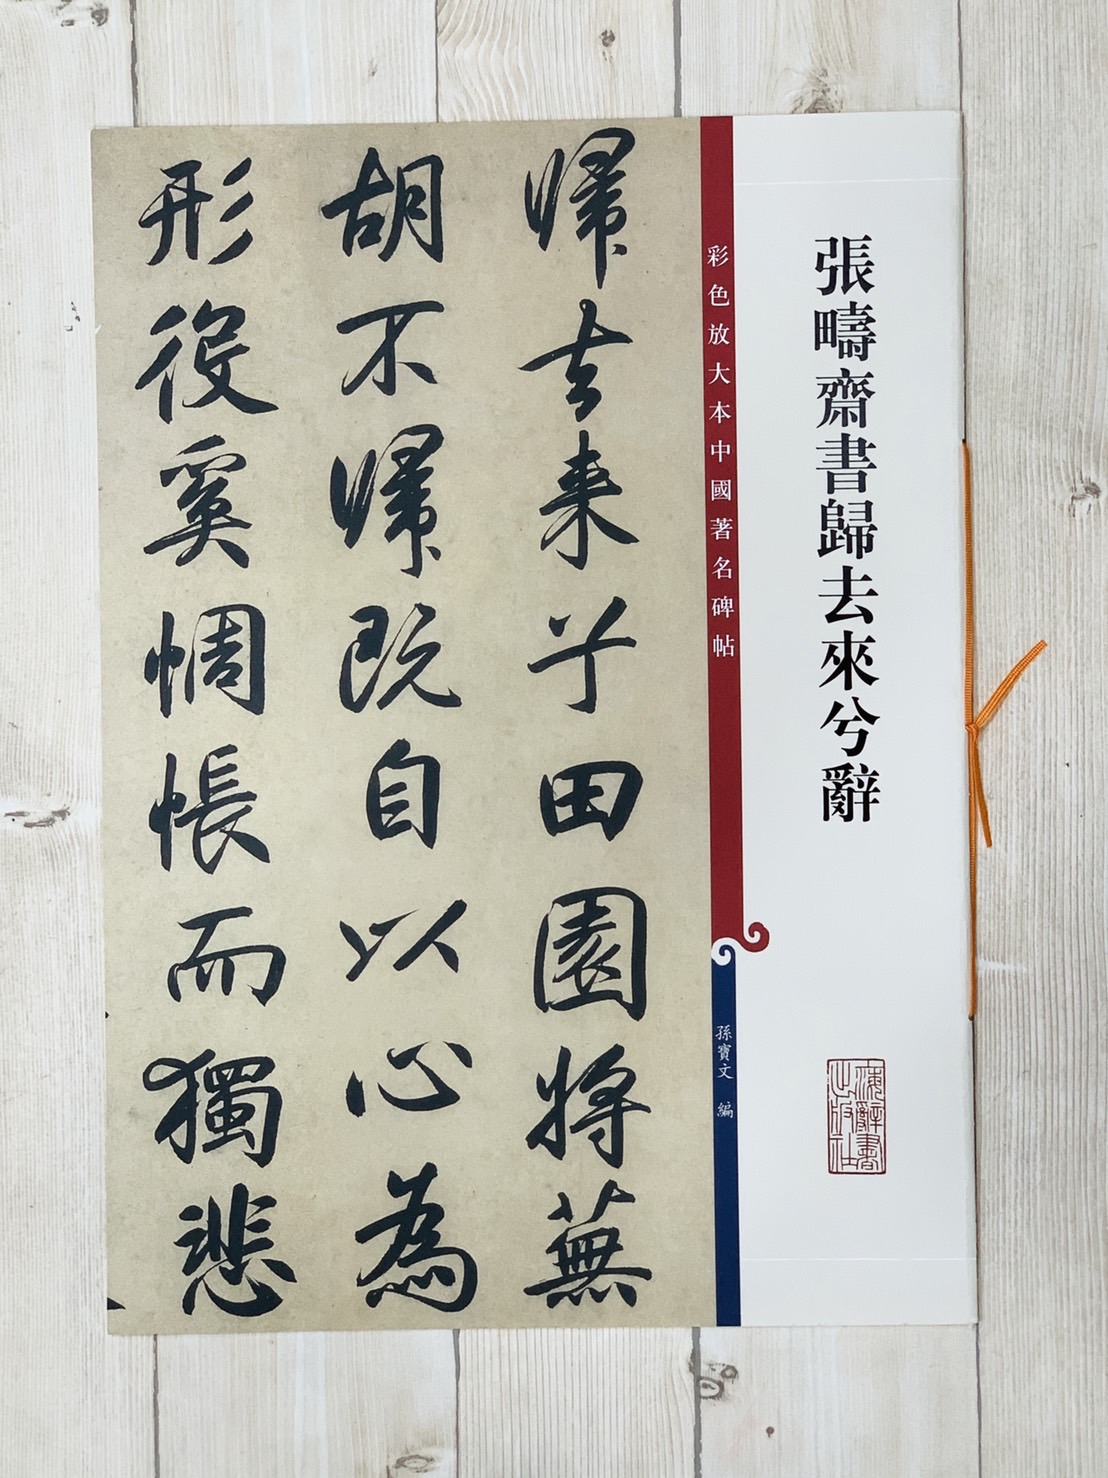 張疇齋書歸去來兮辭
海辭書出版社
彩色放大本中國著名碑帖
孫寶文 編
歸去来兮田園將蕪
胡不歸既自以心為
形役奚惆悵而獨悲